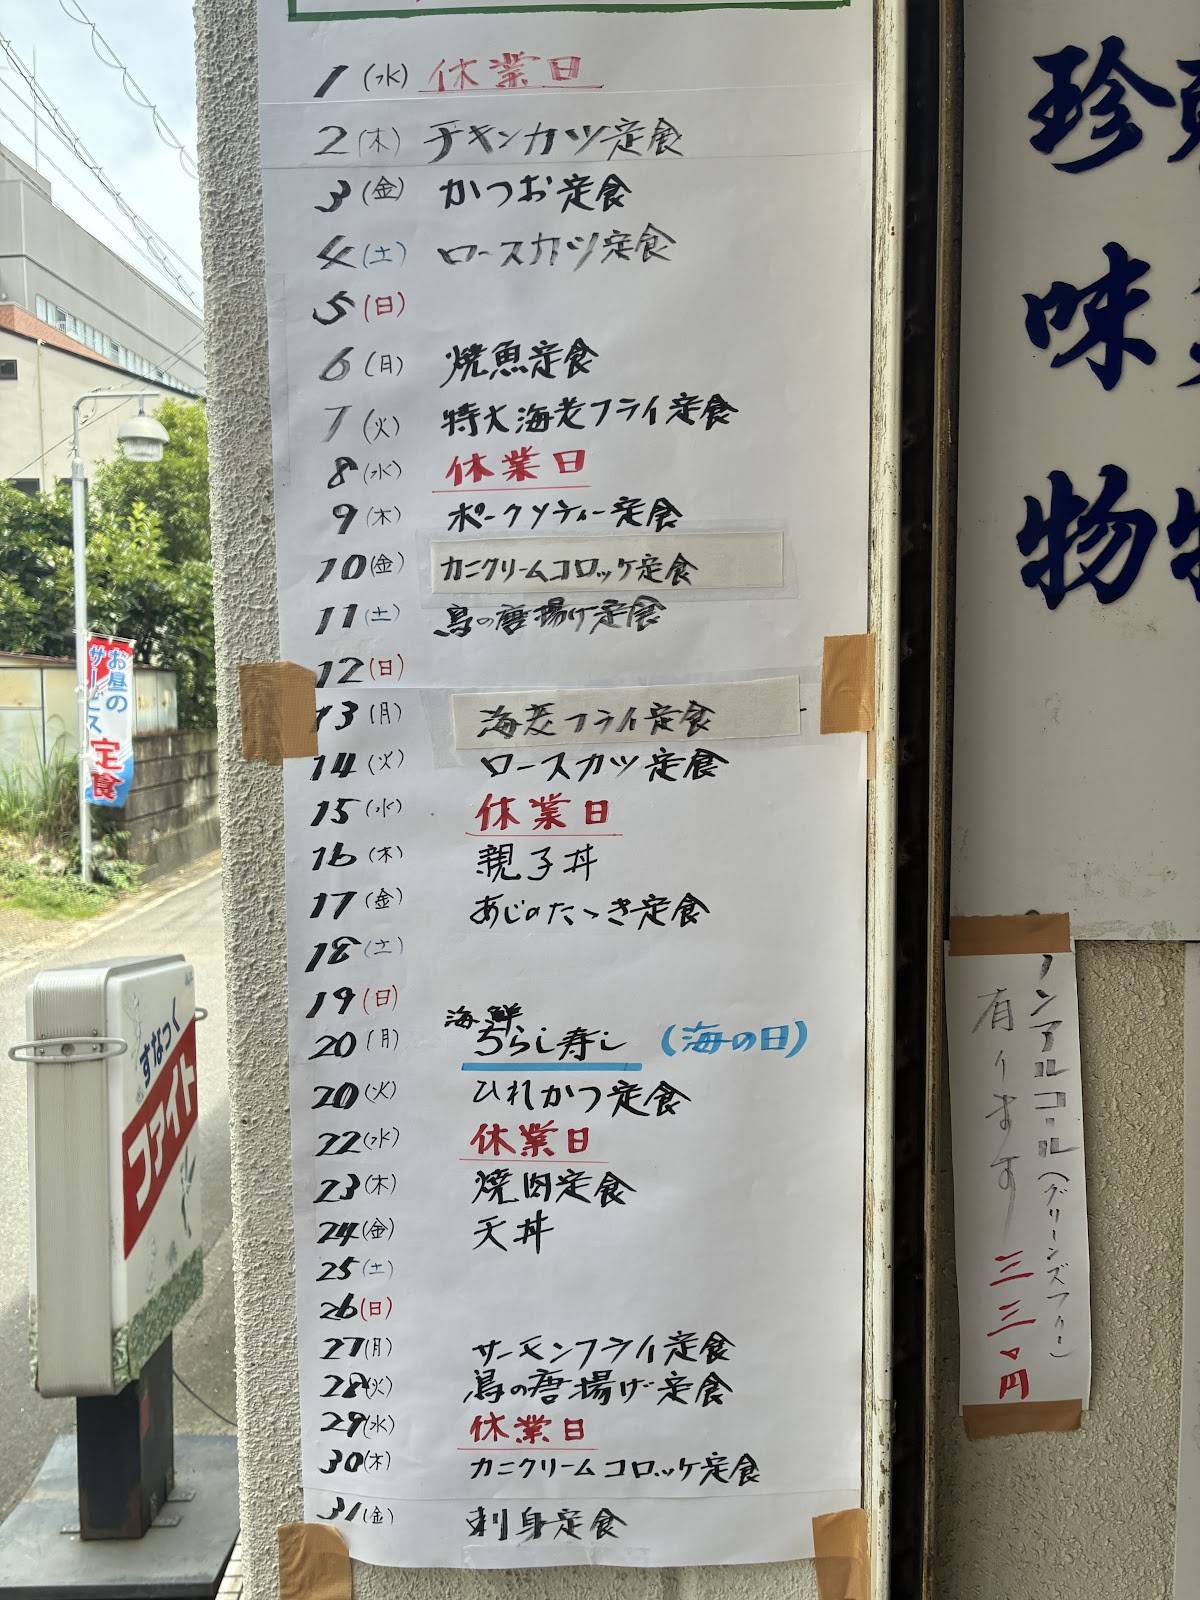 1(水) 休業日
2(木) チキンカツ定食
3(金) かつお定食
4(土) ロースカツ定食
5(日)
6(月) 焼魚定食
7(火) 特大海老フライ定食
8(水) 休業日
9(木) ポークソティー定食
10(金) カニクリームコロッケ定食
11(土) 鳥の唐揚げ定食
12(日)
13(月) 海老フライ定食
14(火) ロースカツ定食
15(水) 休業日
16(木) 親子丼
17(金) あじのたゝき定食
18(土)
19(日)
20(月) 海鮮ちらし寿し (海の日)
20(火) ひれかつ定食
22(水) 休業日
23(木) 焼肉定食
24(金) 天丼
25(土)
26(日)
27(月) サーモンフライ定食
28(火) 鳥の唐揚げ定食
29(水) 休業日
30(木) カニクリームコロッケ定食
31(金) 刺身定食
珍味物
ノンアルコール(グリーンズフリー)
有ります 三三〇円
お昼の
サービス
定食
すなっく
ファイト